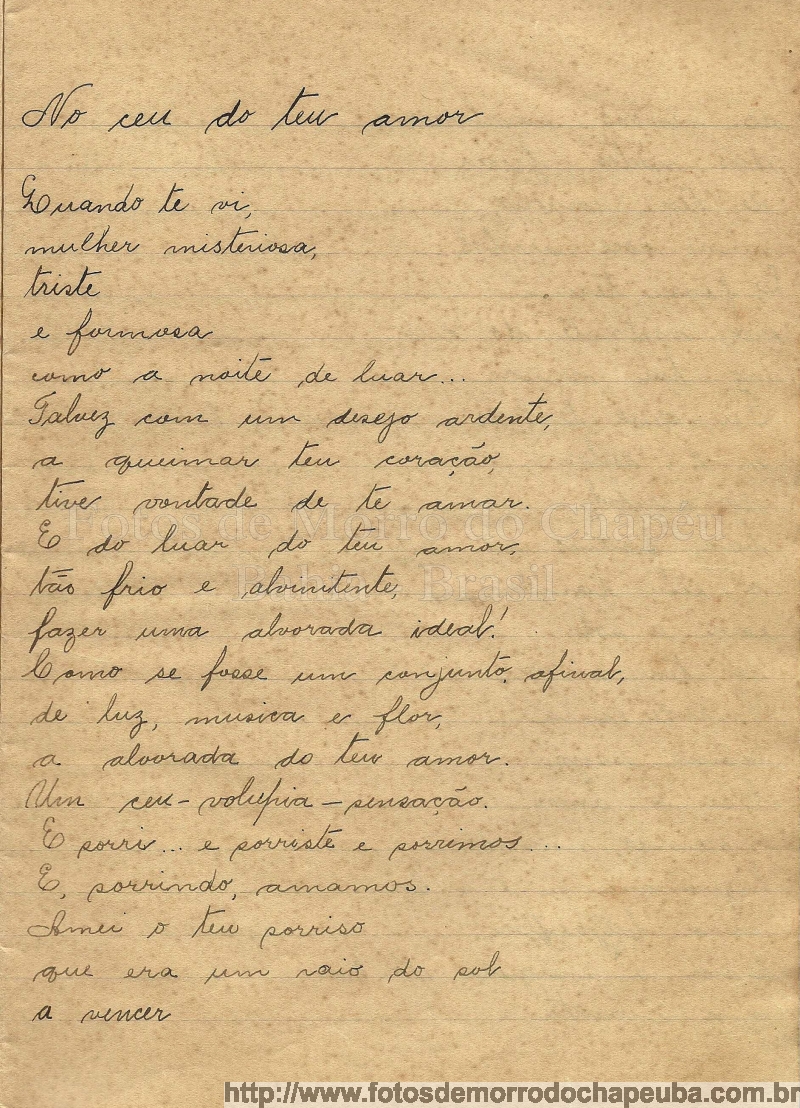 No ceu do teu amor
Quando te vi,
mulher misteriosa,
triste
e formosa
como a noite de luar...
Talvez com um desejo ardente,
a queimar teu coração,
tive vontade de te amar.
Fotos de Morro do Chapéu
E do luar do teu amor,
tão frio e alvinitente,
Bahia - Brasil
fazer uma alvorada ideal!
Como se fosse um conjunto, afinal,
de luz, musica e flor,
a alvorada do teu amor.
Um ceu-volupia-sensação.
E sorri... e sorriste e sorrimos...
E, sorrindo, amamos.
Amei o teu sorriso
que era um raio do sol
a vencer
http://www.fotosdemorrodochapeuba.com.br